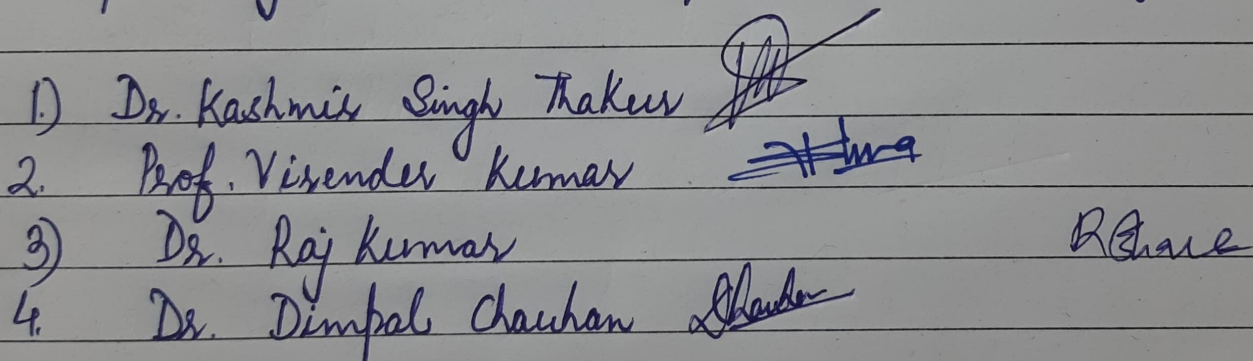 1.) Dr. Kashmir Singh Thakur
2. Prof. Virender Kumar
3) Dr. Raj Kumar
4. Dr. Dimpal Chauhan